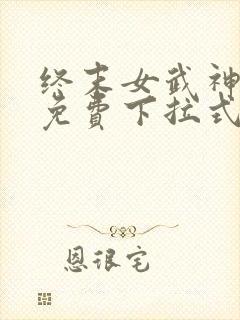 终末女武神
免費下拉式
恩很宅